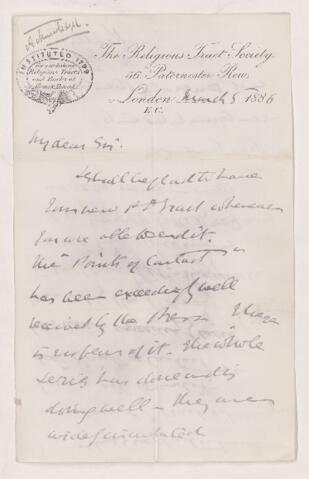 Acknowledged
INSTITUTED 1799
The Religious Tract Society
56, Paternoster Row,
London March 5 1886
E.C.
My dear Sir,
I shall be glad to have
your new P. D. Tract whenever
you are able to send it.
The "Points of Contact"
has been exceedingly well
received by the Press
is of it. The whole
series has done and is
doing well - they are
widely circulated